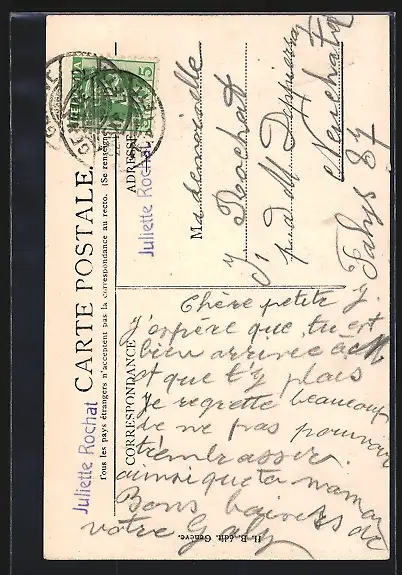 CARTE POSTALE.
Tous les pays étrangers n'acceptent pas la correspondance au recto. (Se renseigner
CORRESPONDANCE
ADRESSE
Juliette Rochat
Juliette Rochat
HELVETIA
5
Mademoiselle
J Rochat
Fahys 87
Neuchatel
Chère petite J.
J'espère que tu est
bien arrivée à
et que t'y plais
Je regrette beaucoup
de ne pas pouvoir
t'embrasser
ainsi que ta maman
Bons baisers de
votre Gaby
H. B., édit. Genève.